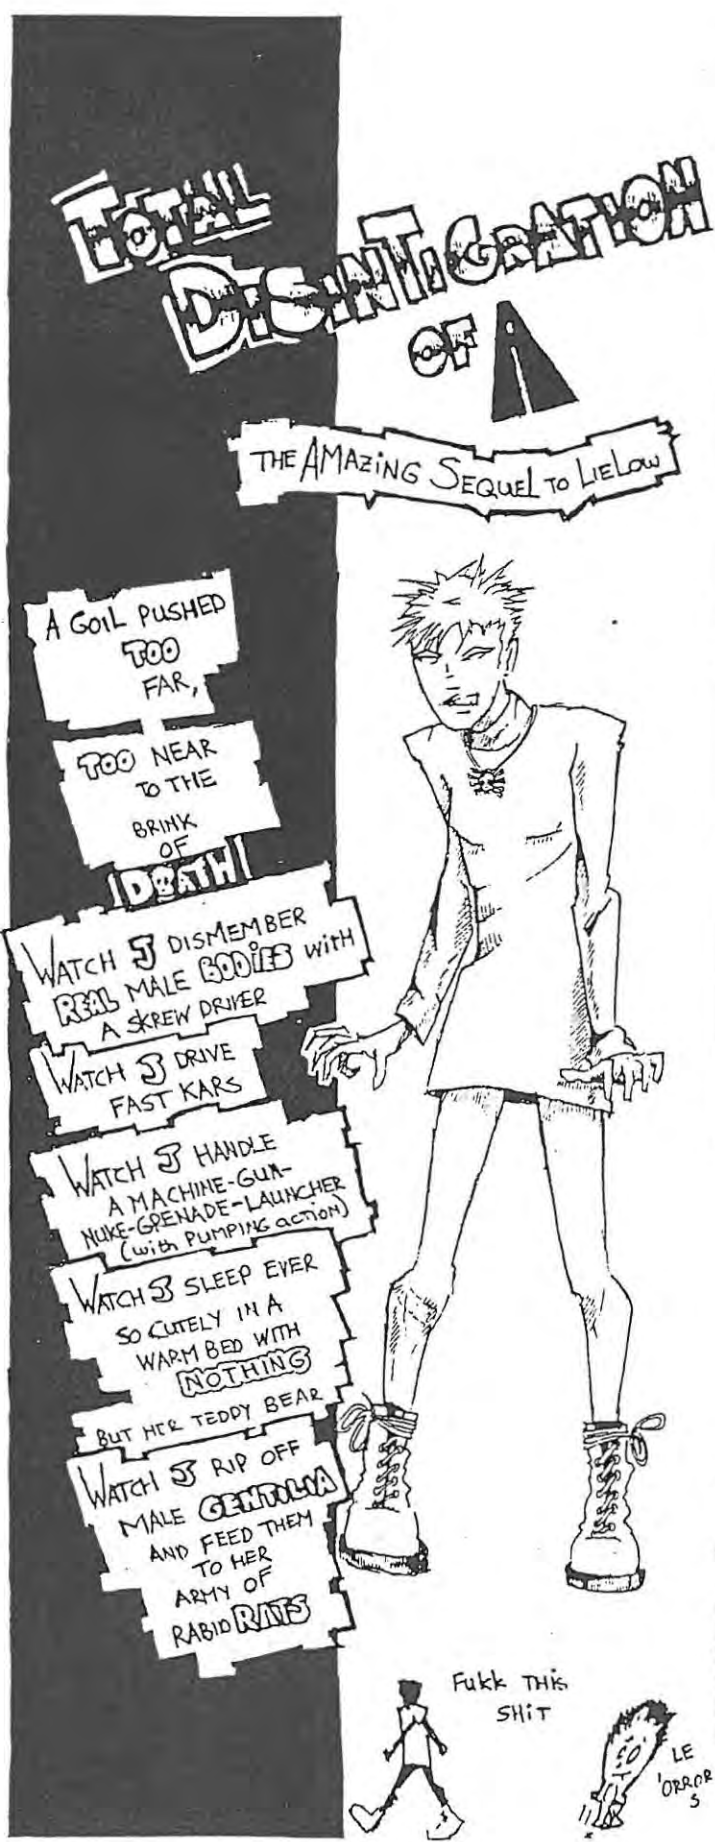 TOTAL
DISINTIGRATION
OF A
THE AMAZING SEQUEL TO LIELOW
A GOIL PUSHED
TOO
FAR,
TOO NEAR
TO THE
BRINK
OF
DEATH
WATCH J DISMEMBER
REAL MALE BODIES WITH
A SKREW DRIVER
WATCH J DRIVE
FAST KARS
WATCH J HANDLE
A MACHINE-GUN-
NUKE-GRENADE-LAUNCHER
(with PUMPING action)
WATCH J SLEEP EVER
SO CUTELY IN A
WARM BED WITH
NOTHING
BUT HER TEDDY BEAR
WATCH J RIP OFF
MALE GENTILIA
AND FEED THEM
TO HER
ARMY OF
RABID RATS
FUKK THIS
SHIT
LE
'ORROR
S